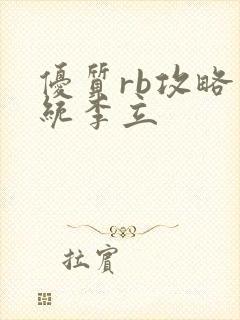 優質rb攻略
統李立
拉賓